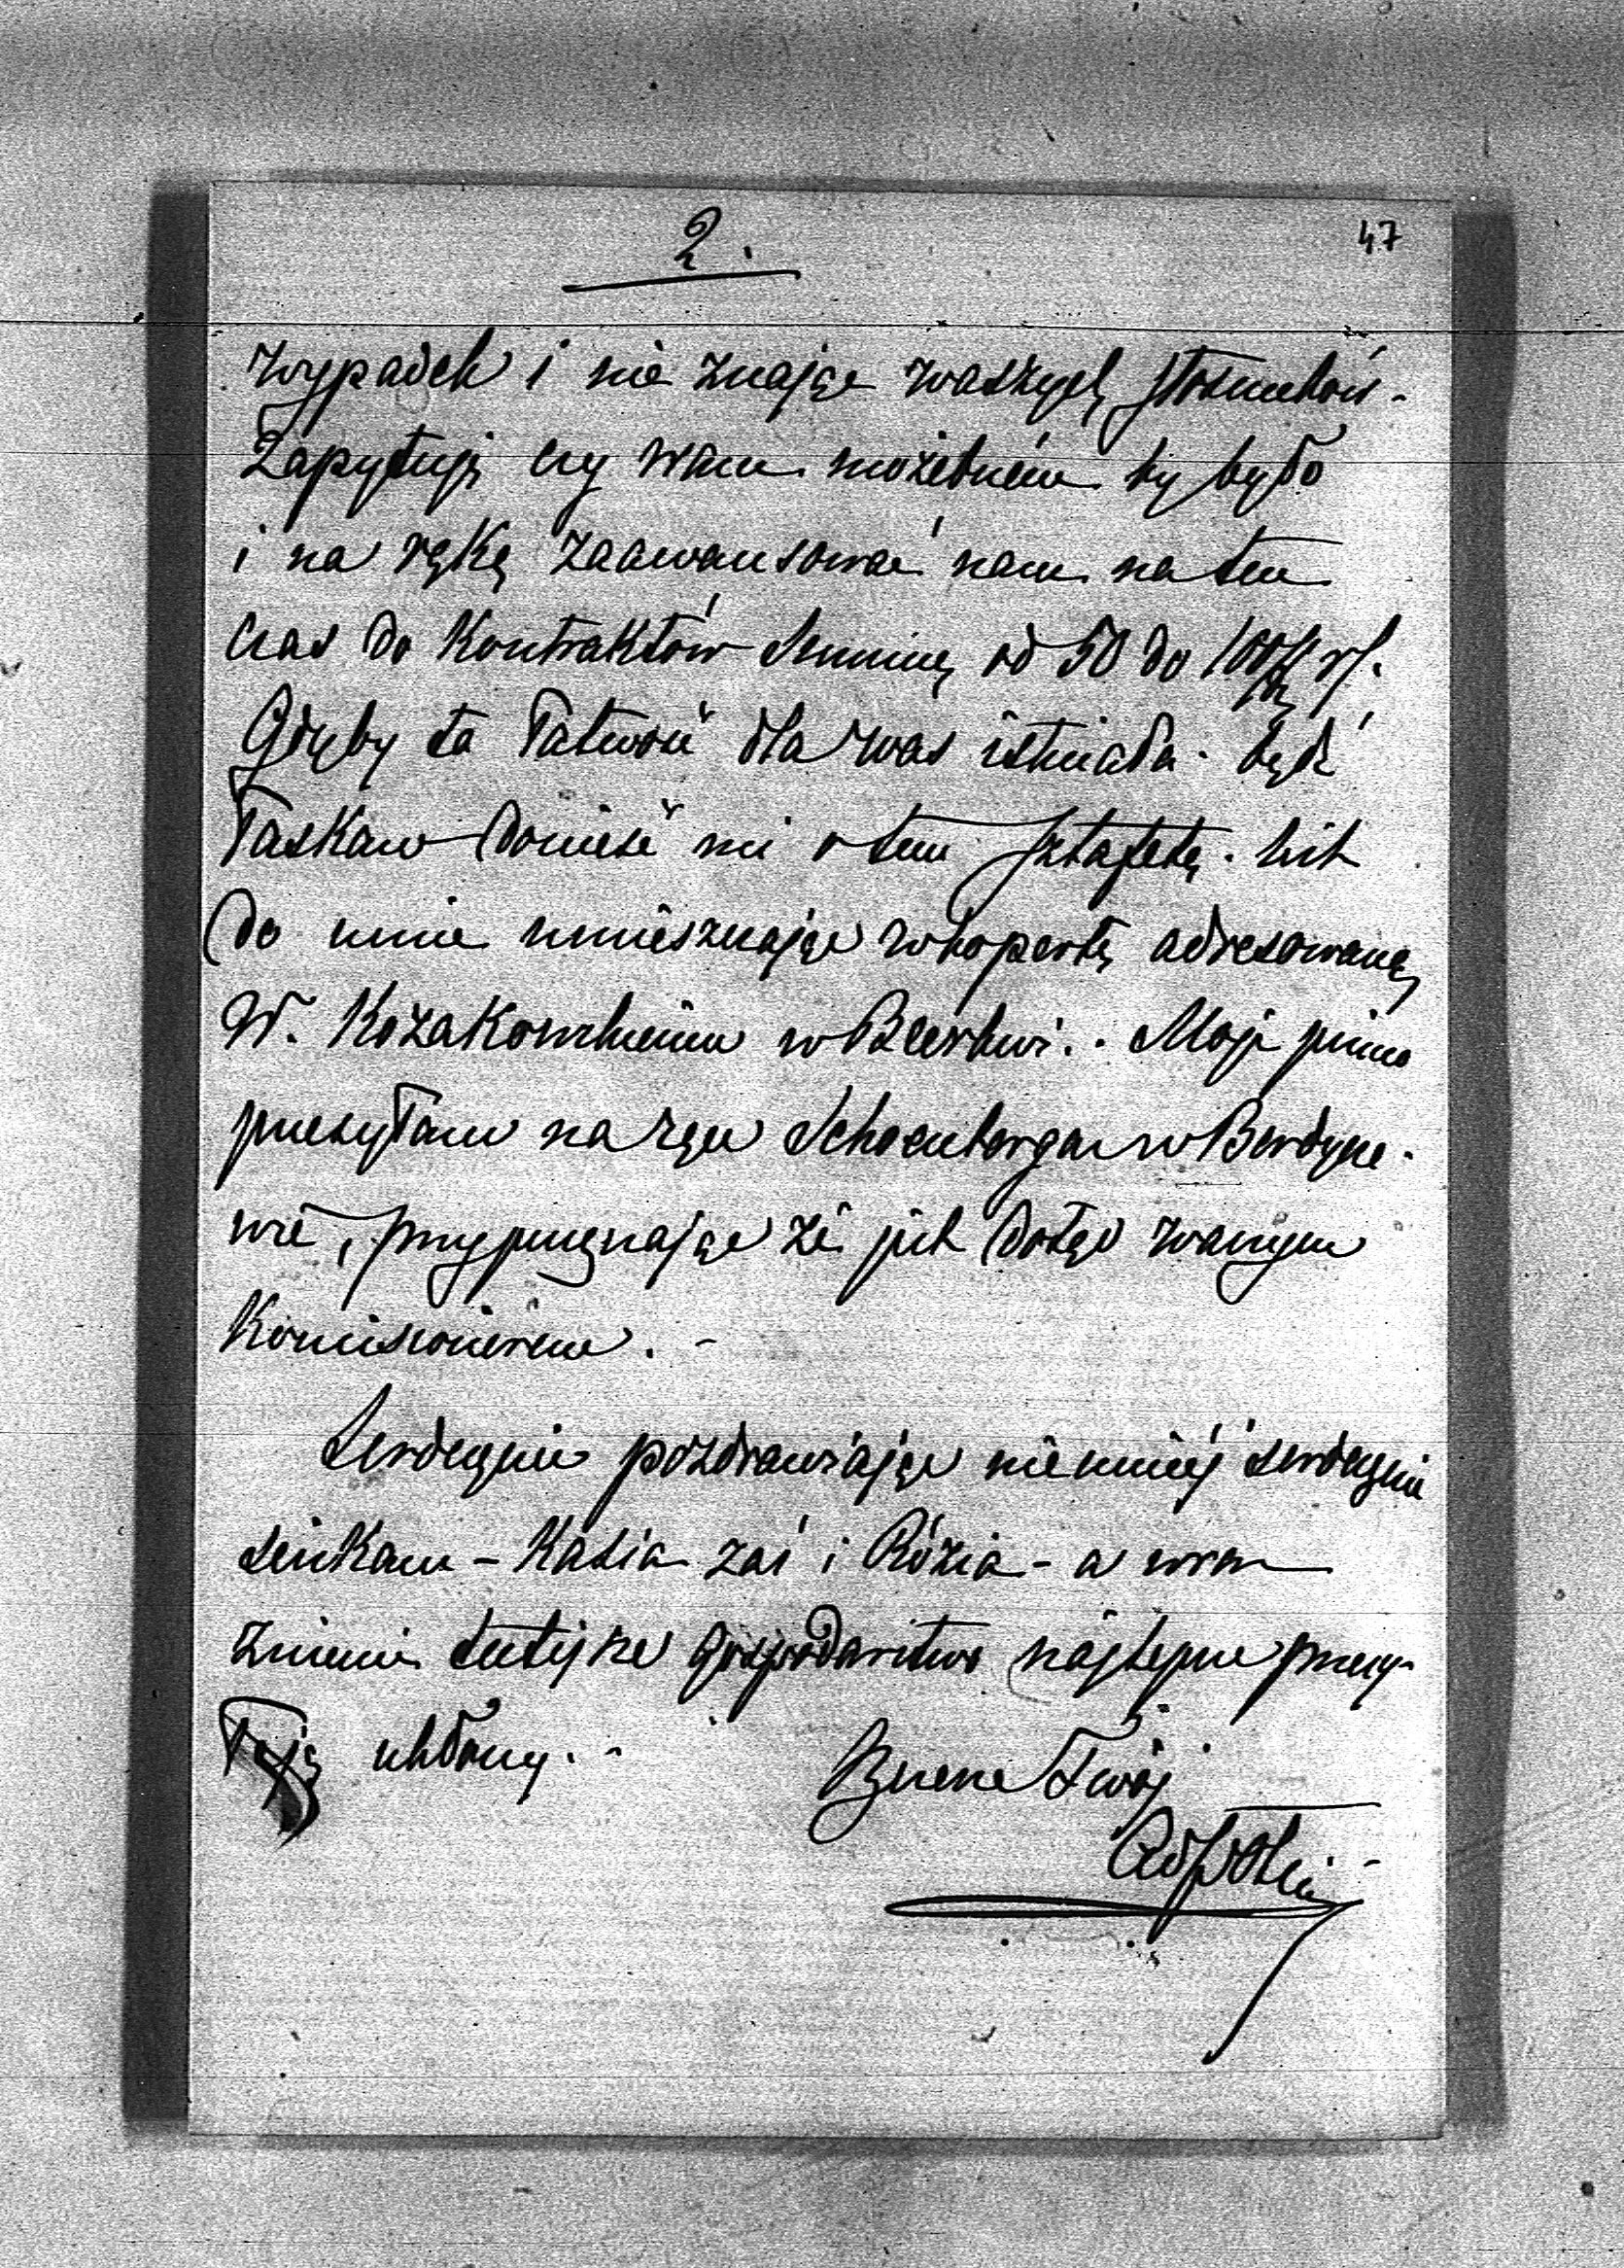 2.
47
wypadek i nie znając waszych stosunków -
Zapytuję czy wam możebnem by było
i na rękę zaawansować nam na ten
czas do Kontraktów Summę od 50 do 100
Gdyby ta łatwość dla was istniała - bądź
łaskaw donieść mi o tem sztafetą - list
do mnie umieszczając w kopertę adresowaną
W. Kozakowskiemu w . Moje pismo
przesyłam na ręce Schoenberga w Berdycze-
wie, przypuszczając że jest dotąd waszym
Komisionierem . -
Serdecznie pozdrawiając niemniej serdecznie
ściskam - Kasia zaś i Rózia - a wraz
z niemi tutejsze gospodarstwo najlepsze przesy-
łają ukłony. -
Szczerze Twój